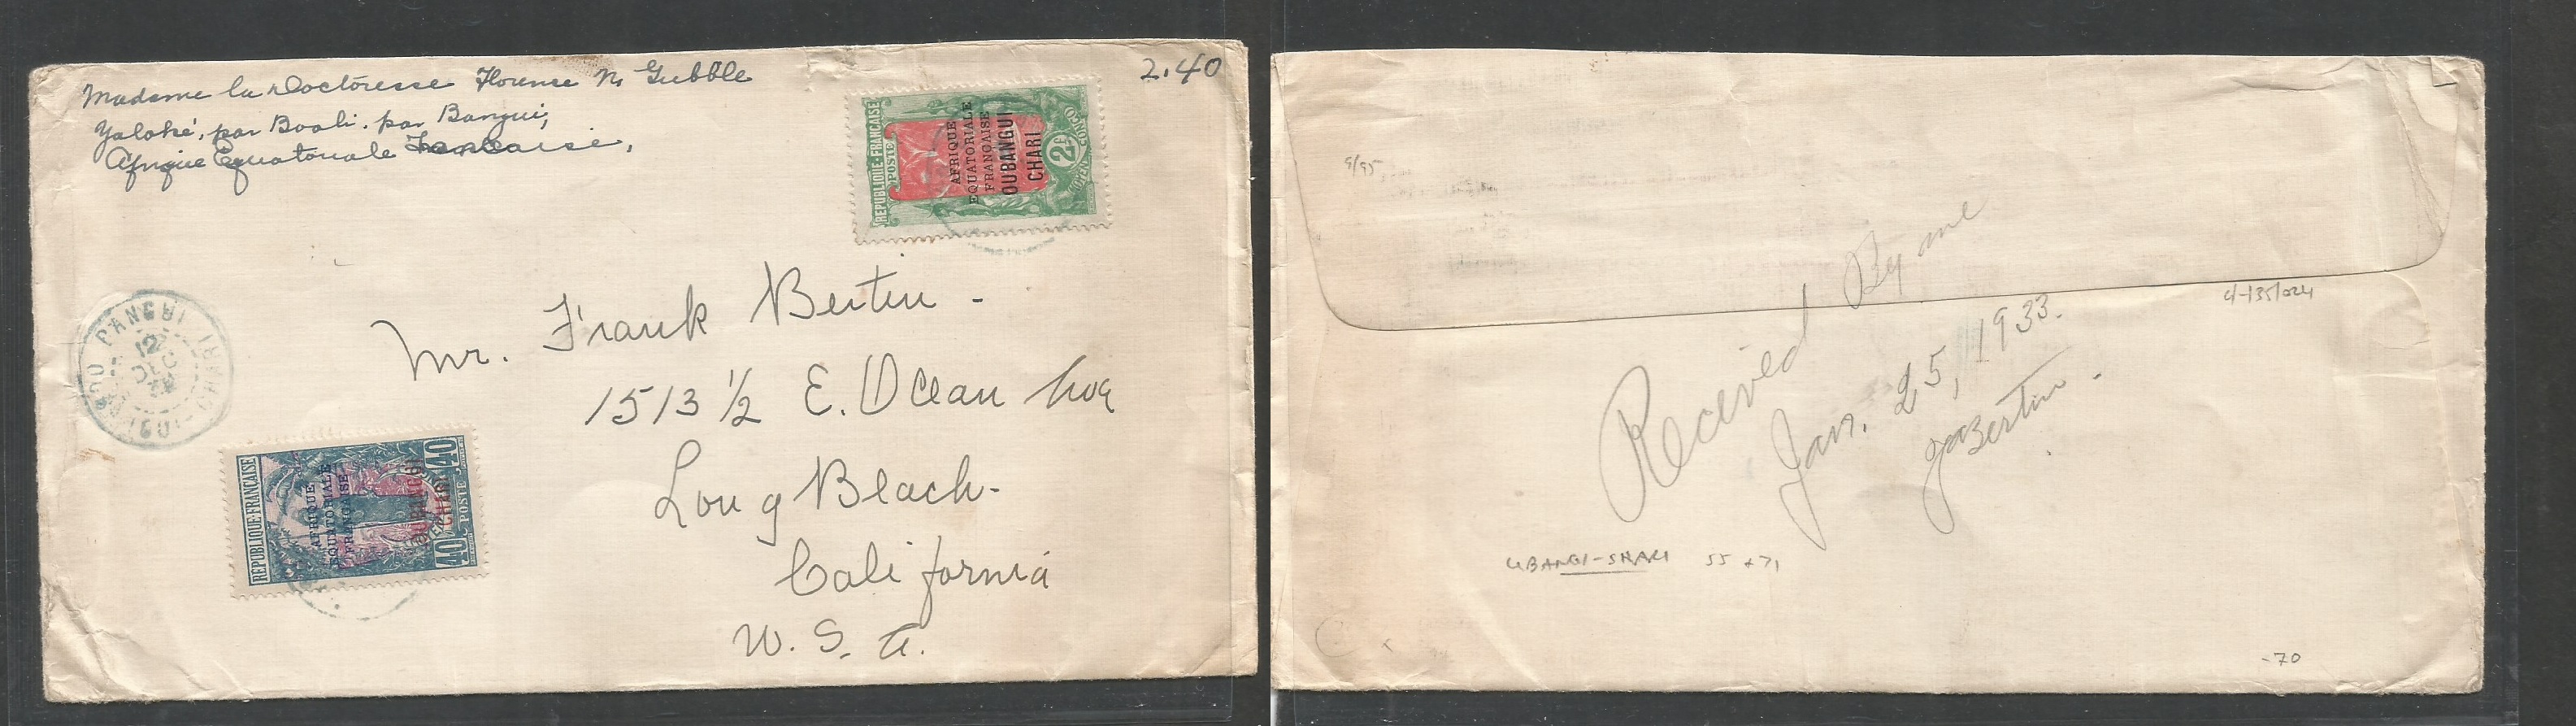 Madame la Doctoresse Florence N. Gubble
Yaloké, par Boali, par Bangui,
Afrique Equatoriale Francaise,
2.40
REPUBLIQUE-FRANÇAISE
POSTE
AFRIQUE
EQUATORIALE
FRANÇAISE
OUBANGUI
CHARI
2F
MOYEN CONGO
BANGUI
OUBANGUI-CHARI
12
DEC
32
Mr. Frank Bertin -
1513 1/2 E. Ocean Ave
Long Beach -
California
U. S. A.
REPUBLIQUE-FRANÇAISE
AFRIQUE
EQUATORIALE
FRANÇAISE
OUBANGUI
CHARI
40
POSTE
40
9/95
Received By me
Jan. 25, 1933.
Bertin.
UBANGI-SHARI 55 + 71
-70